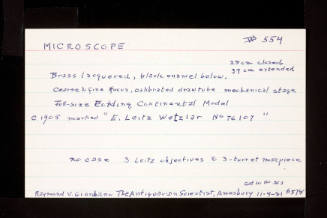 MICROSCOPE
# 554
29 cm closed
39 cm extended
Brass lacquered, black enamel below,
Coarse & fine focus, calibrated drawtube mechanical stage
Full-size Folding Continental Model
c 1905 marked "E. Leitz Wetzlar No 76107"
no case 3 Leitz objectives & 3-turret nosepiece
Raymond V. Giordano The Antiquarian Scientist, Amesbury 11-9-81 #574